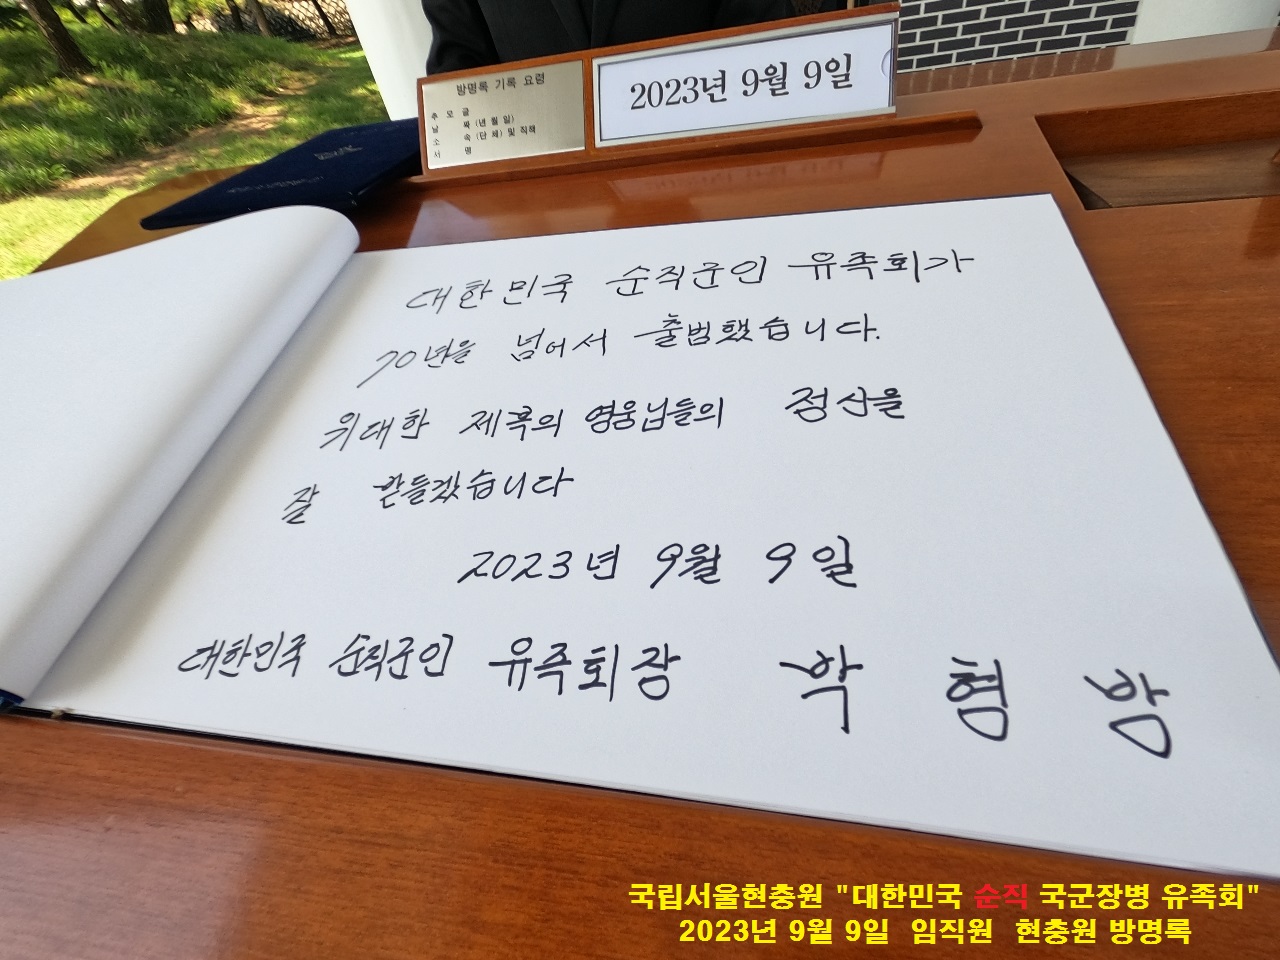 방명록 기록 요령
추 모 글
날 짜 (년 월 일)
소 속 (단 체) 및 직책
서 명
2023년 9월 9일
대한민국 순직군인 유족회가
70년을 넘어서 출범했습니다.
위대한 제복의 영웅님들의 정신을
잘 받들겠습니다
2023년 9월 9일
대한민국 순직군인 유족회장 박 형 방
국립서울현충원 "대한민국 순직 국군장병 유족회"
2023년 9월 9일 임직원 현충원 방명록